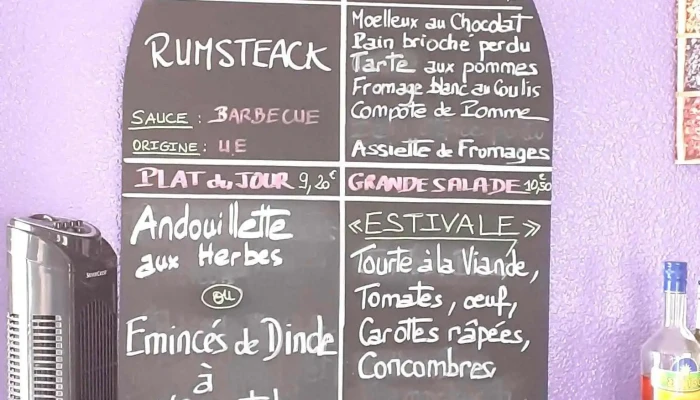 RUMSTEACK
SAUCE : BARBECUE
ORIGINE : UE
PLAT du JOUR 9,20€
Andouillette
aux Herbes
ou
Emincés de Dinde
à
Moelleux au Chocolat
Pain brioché perdu
Tarte aux pommes
Fromage blanc au Coulis
Compôte de Pomme
Assiette de Fromages
GRANDE SALADE 10,50€
« ESTIVALE »
Tourte à la Viande,
Tomates, œuf,
Carottes râpées,
Concombres,
SILVERCREST